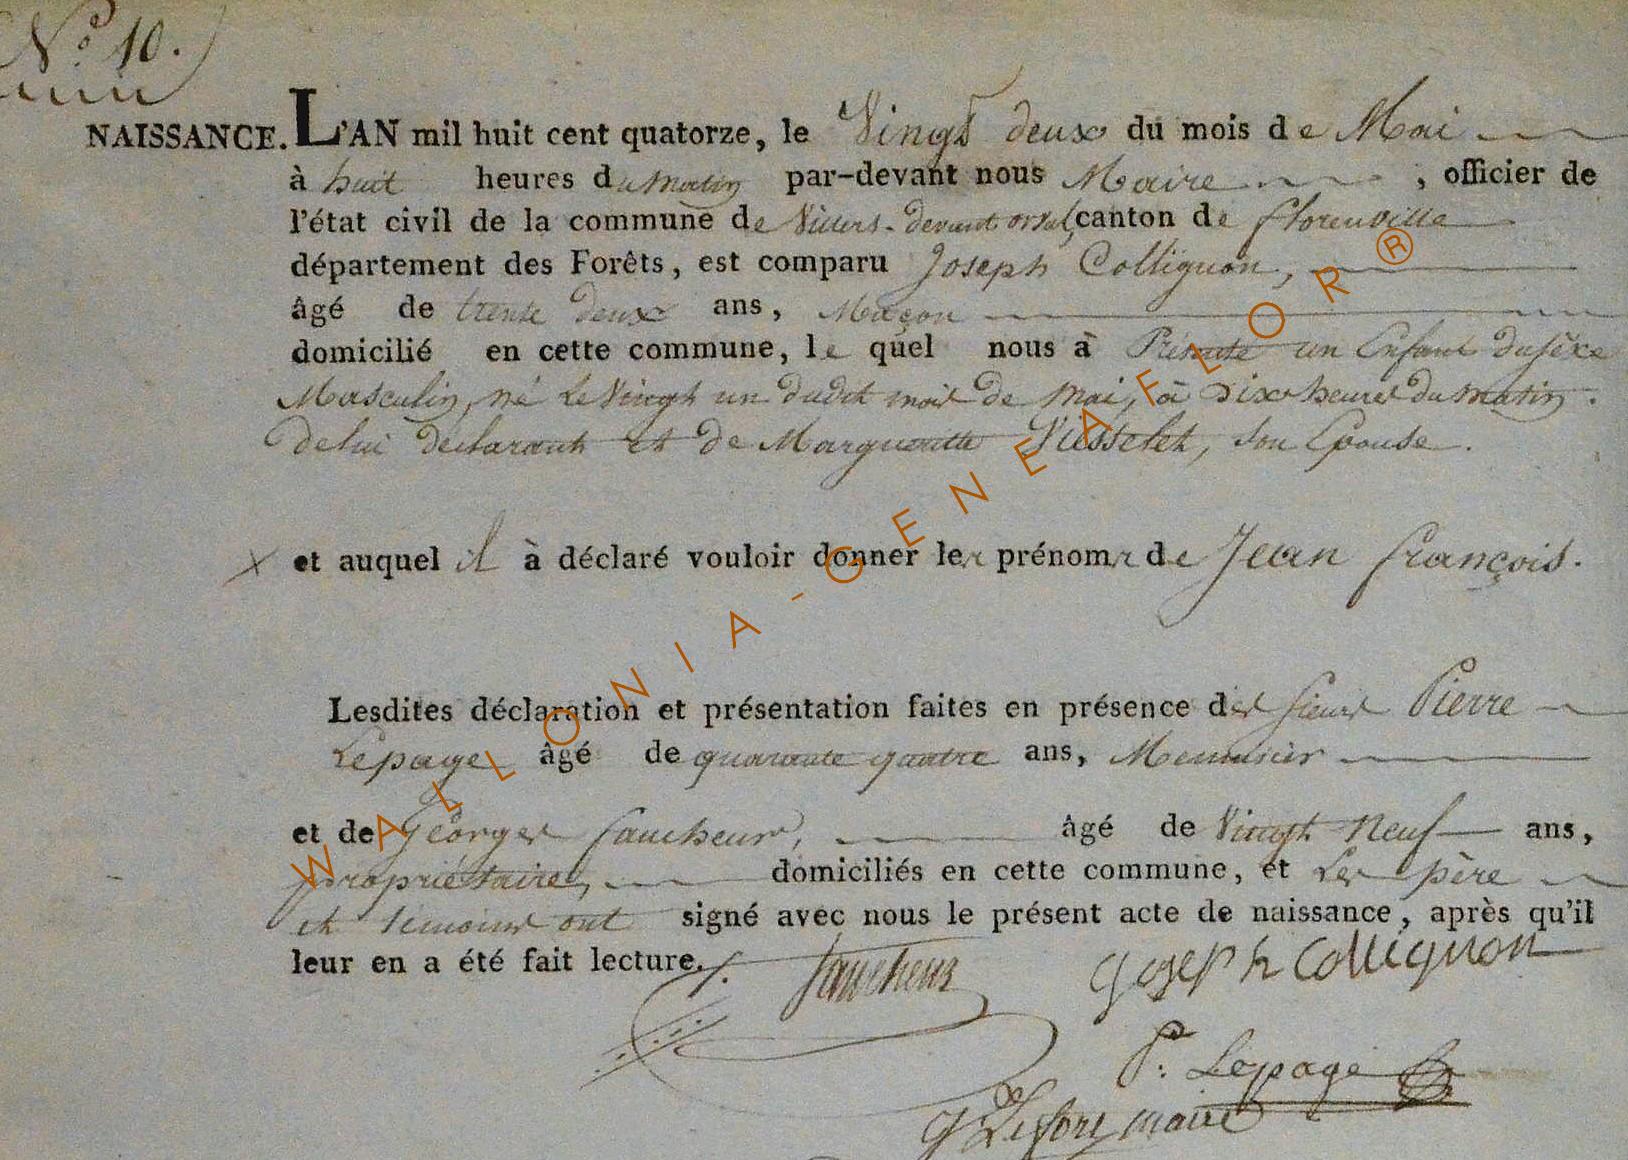 N.° 10.
NAISSANCE. L'AN mil huit cent quatorze, le Vingt deux du mois de Mai
à huit heures du matin par-devant nous Maire , officier de
l'état civil de la commune de Villers-devant orval, canton de florenville
département des Forêts, est comparu Joseph Collignon,
âgé de trente deux ans, Maçon
domicilié en cette commune, le quel nous à Présenté un Enfant du séxe
Masculin, né le Vingt un dudit mois de mai, à Dix heures du matin.
de lui déclarant et de Margueritte son Epouse.
x et auquel il à déclaré vouloir donner les prénoms de Jean françois.
Lesdites déclaration et présentation faites en présence des sieurs Pierre
Lepage âgé de quarante quatre ans, Menuisier
et de Georges faucheur, âgé de Vingt Neuf ans,
propriétaire, domiciliés en cette commune, et Les père
et témoins ont signé avec nous le présent acte de naissance, après qu'il
leur en a été fait lecture. f. faucheur Joseph Collignon
P. Lepage
maire
WALLONIA-GENEAFLOR®